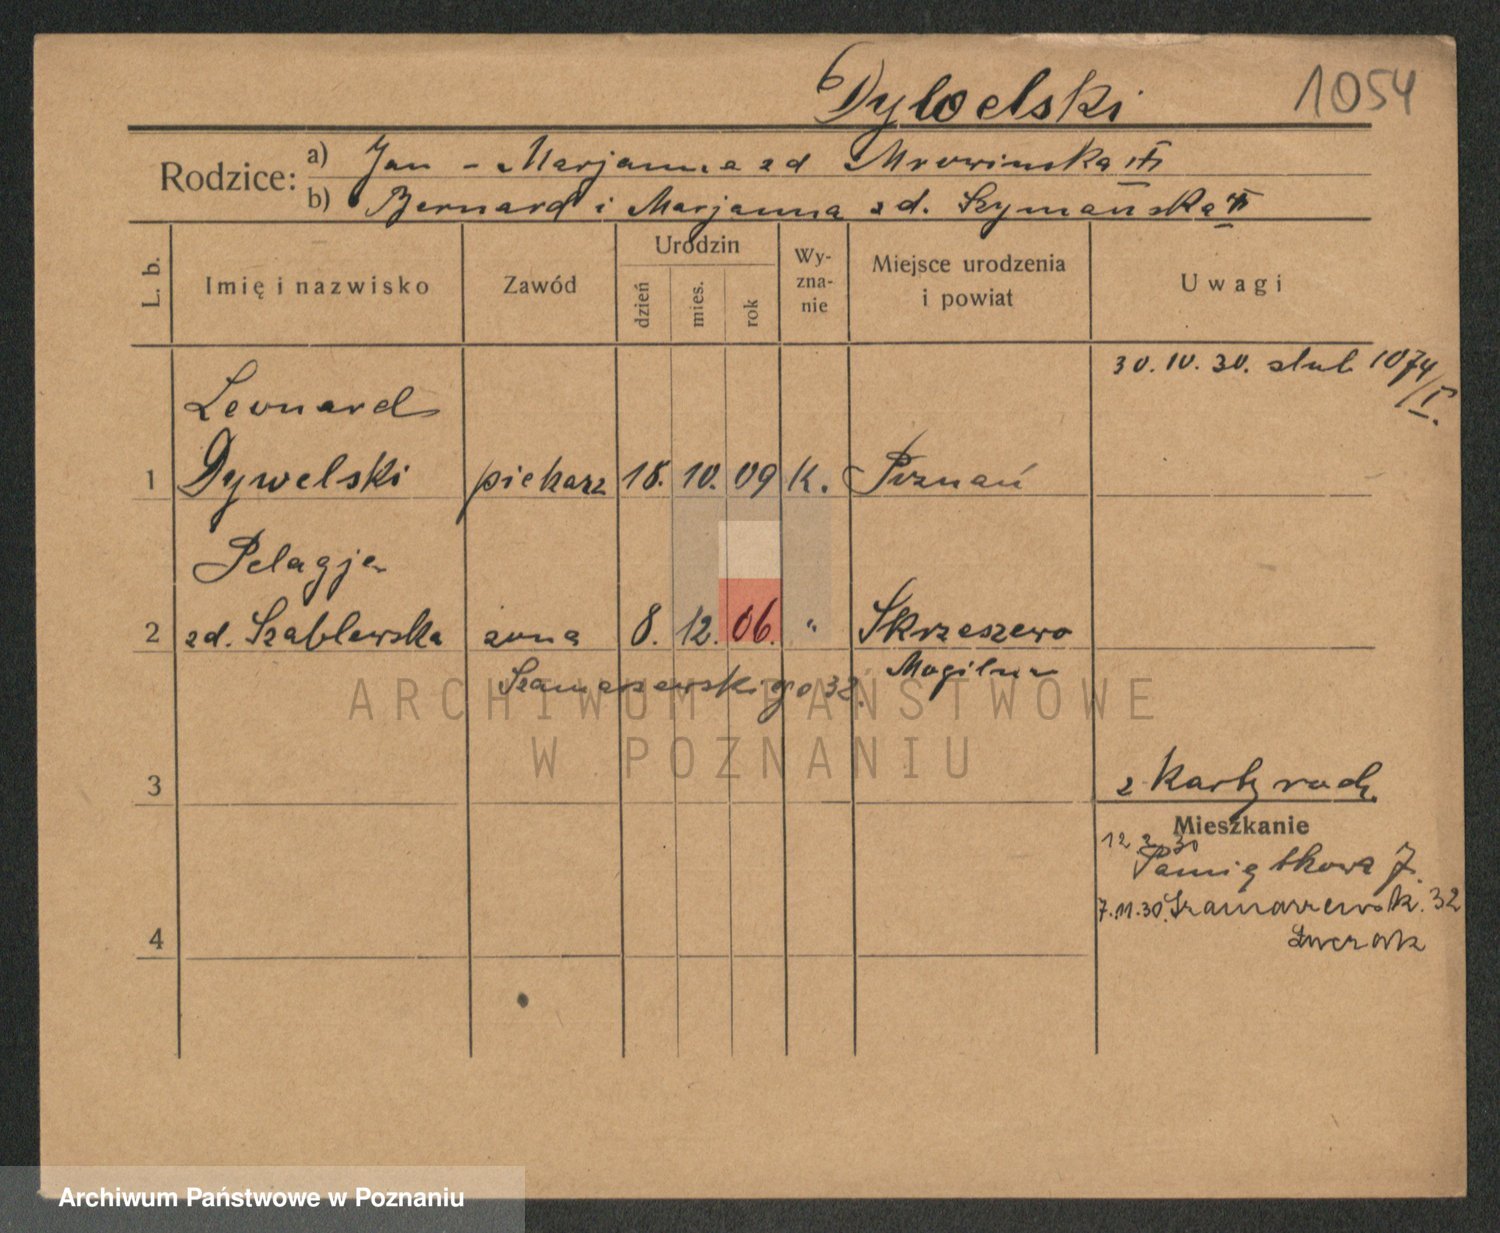 Dywelski 1054
Rodzice: a) Jan - Marjanna zd Mrowinska
b) Bernard i Marjanna zd. Szymańska
L. b. Imię i nazwisko Zawód Urodzin dzień mies. rok Wyznanie Miejsce urodzenia i powiat Uwagi
30. IV. 30. slub 1074/I.
Leonard
1 Dywelski piekarz 18. 10. 09 K. Poznań
Pelagja
2 zd. Szablewska żona 8. 12. 06. " Skrzeszewo
Szamarzewskiego 32. Mogilno
ARCHIWUM PAŃSTWOWE
W POZNANIU
3 z karty rodz.
Mieszkanie
12. 2. 30
Pamiątkowa 7.
7.11.30. Szamarzewsk. 32
4
Archiwum Państwowe w Poznaniu